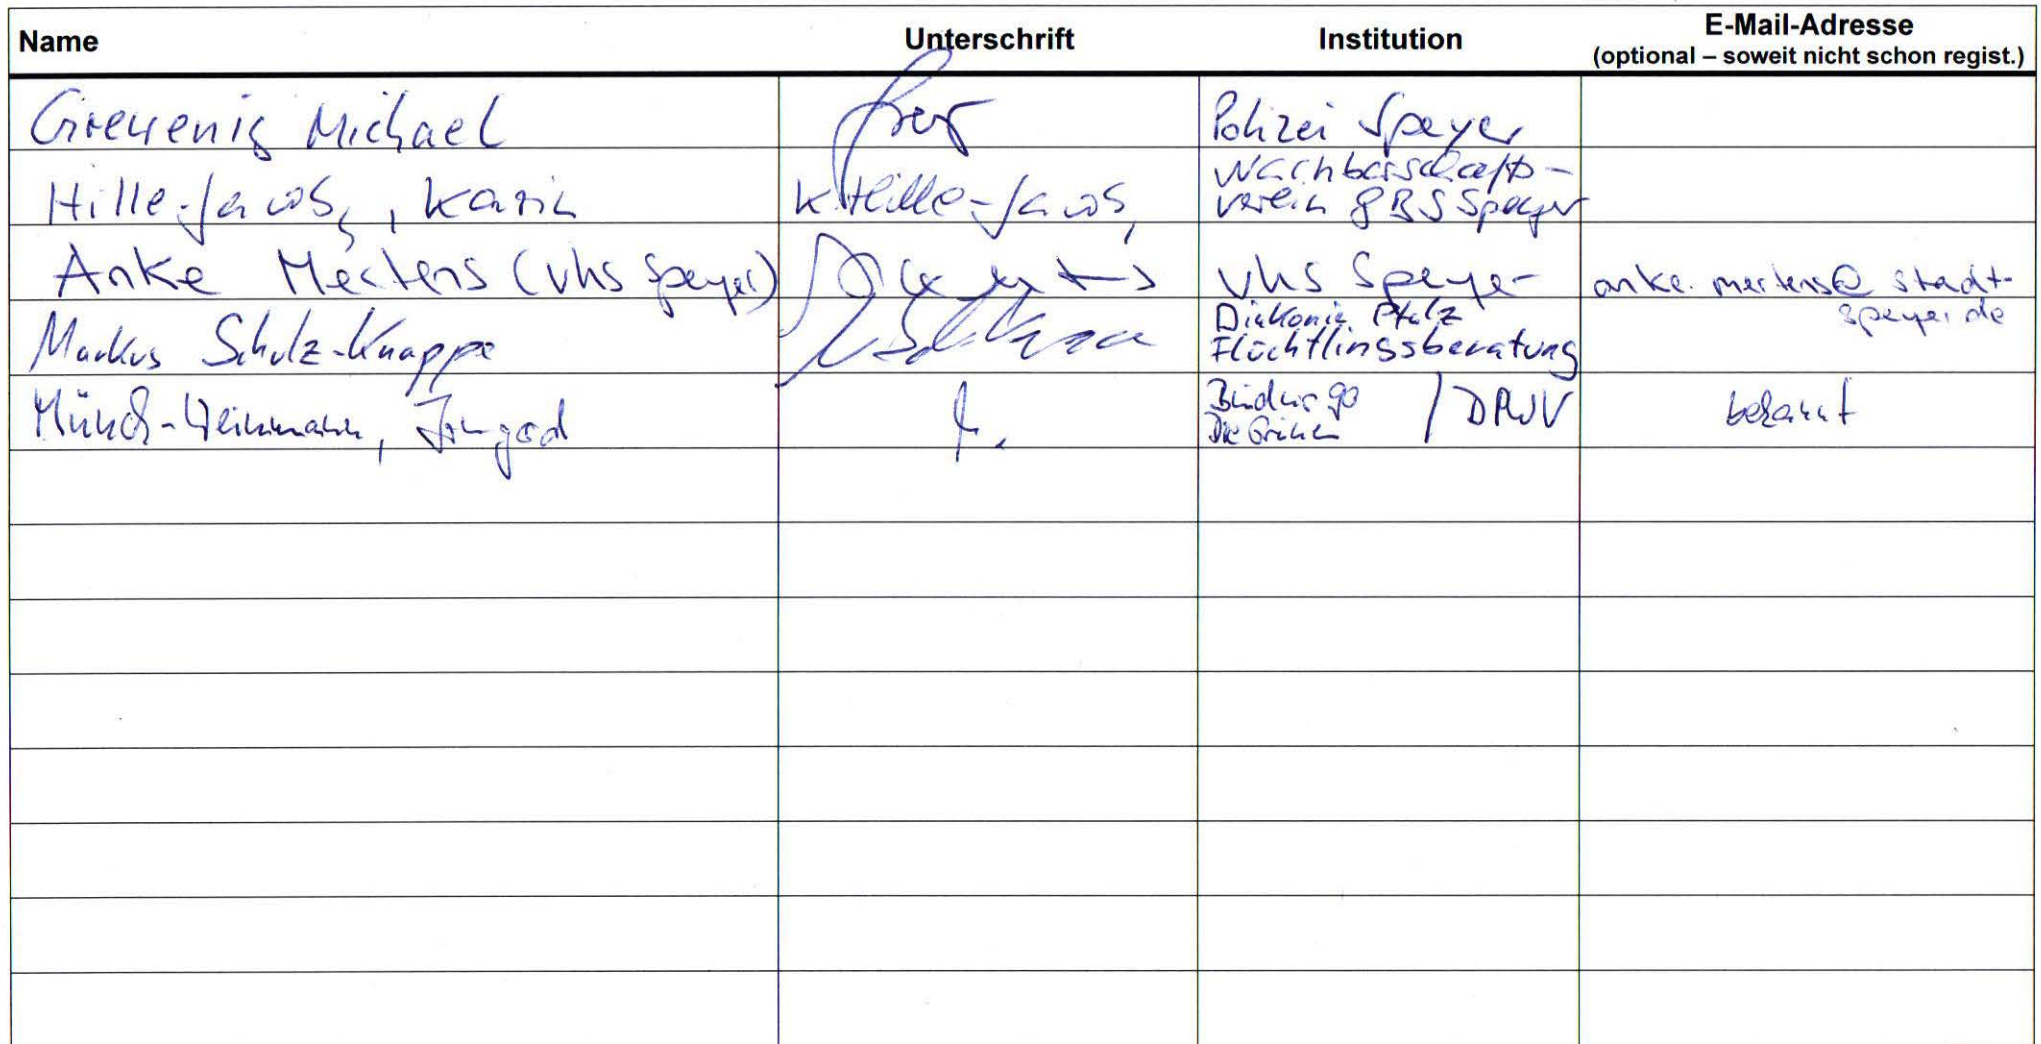 Name Unterschrift Institution E-Mail-Adresse
(optional – soweit nicht schon regist.)
Grewenig Michael Polizei Speyer
Hille-Jacobs, Karin K. Hille-Jacobs, Nachbarschafts-
verein GBS Speyer
Anke Mertens (vhs Speyer) vhs Speyer anke.mertens@stadt-
speyer.de
Markus Schulz-Knappe Diakonie Pfalz
Flüchtlingsberatung
Münch-Weinmann, Irmgard Bündnis 90 / DPWV bekannt
Die Grünen